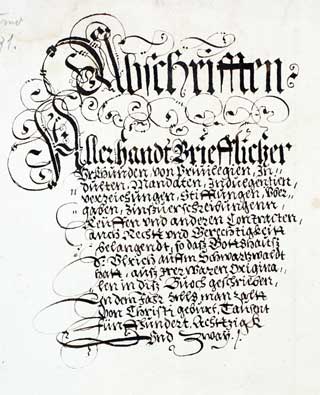 Abschrifften
Allerhandt Briefflicher
Vrkhunden, von Priuilegien, In-
dulten, Mandaten, Indulgentien,
verzeihungen, Stifftungen, vber-
gaben, Zinßuerschreibungenn,
Keüffen vnd anderen Contracten,
auch Recht vnd Gerechtigkeit
belangendt, so daß Gottshauß
S. Vlrich auffm Schwartzwaldt
hatt, auß Irer waren Origina-
len in diß Buoch geschriben,
In dem Jahr alls man zalt
von Christi geburt, Taußent
Fünffhundert, Achtzig
Vnd Zway.